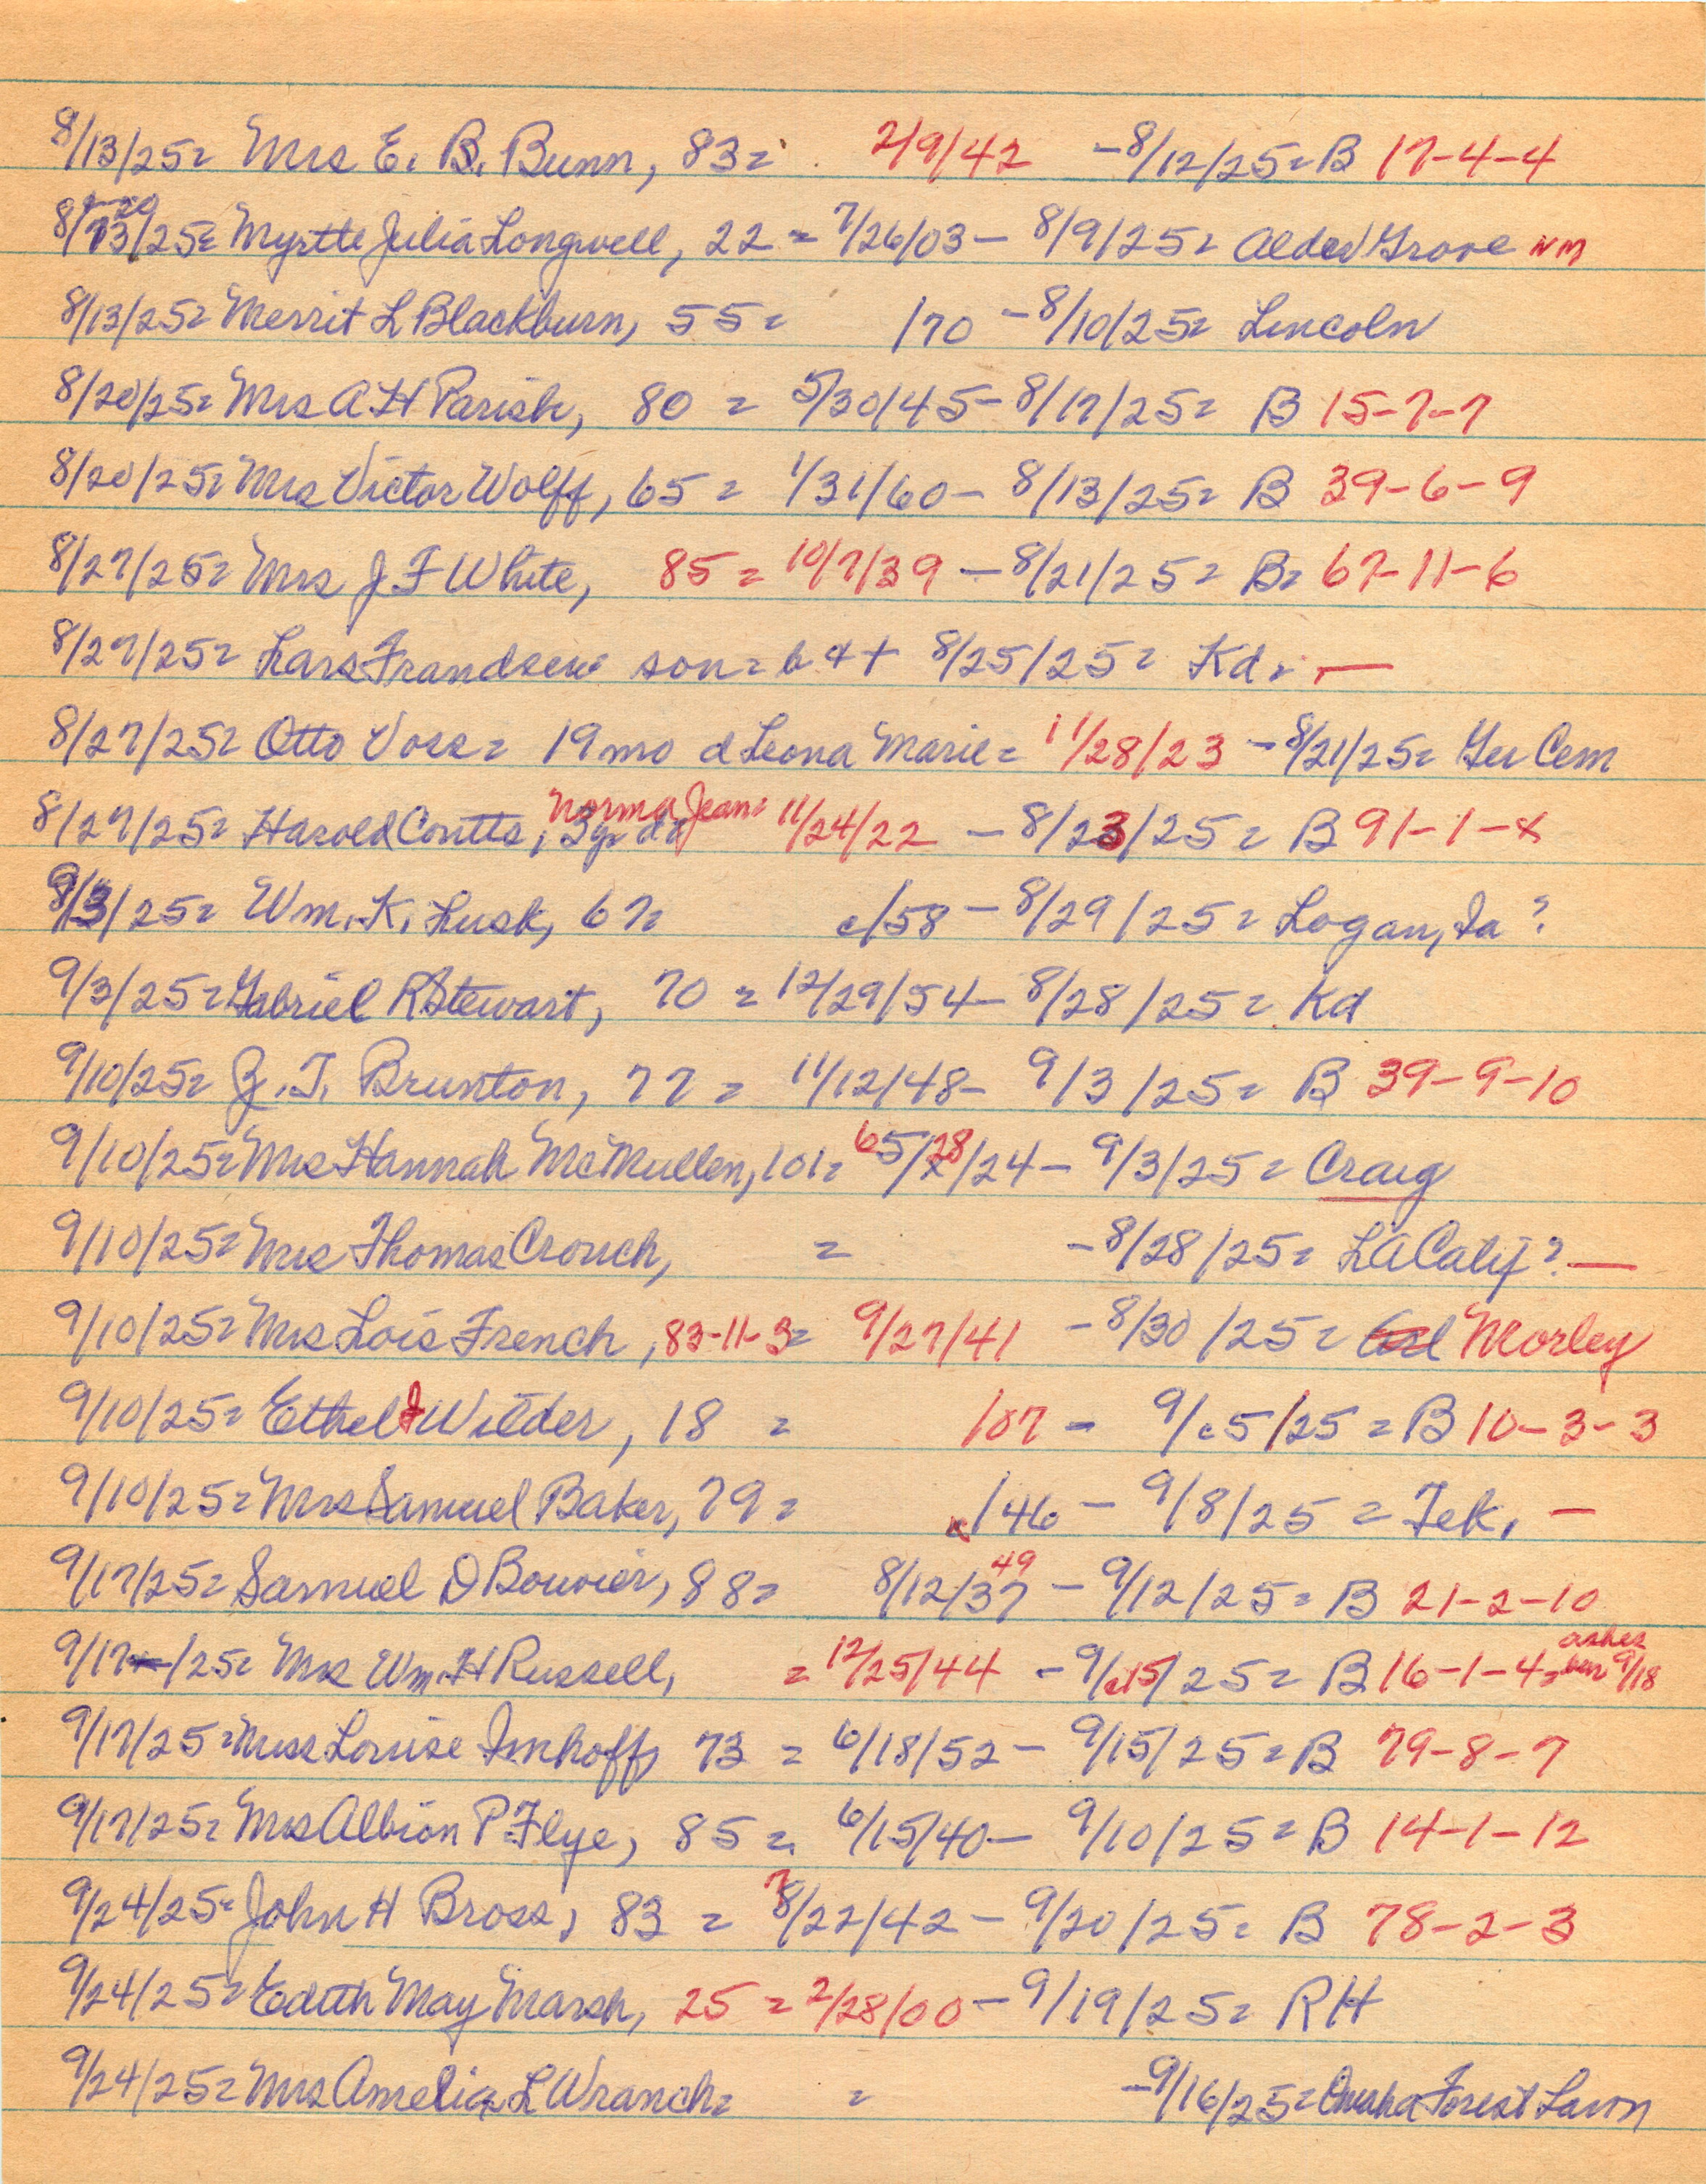 8/13/25= Mrs E. B. Bunn, 83= 2/9/42 -8/12/25= B 17-4-4
8/13/25= Myrtte Julia Longwell, 22 = 7/26/03- 8/9/25= Alder Grove NM
8/13/25= Merrit L Blackburn, 55= /70 -8/10/25= Lincoln
8/20/25= Mrs A H Parish, 80 = 5/30/45- 8/17/25= B 15-7-7
8/20/25= Mrs Victor Wolff, 65 = 1/31/60- 8/13/25= B 39-6-9
8/27/25= Mrs J F White, 85 = 10/7/39 -8/21/25= B= 67-11-6
8/27/25= Lars Frandsen son= 8/25/25= Kd= —
8/27/25= Otto Voss= 19mo d Leona Marie= 11/28/23 -8/21/25= Ger Cem
8/27/25= Harold Coutts, 3yr da Norma Jean= 11/24/22 - 8/23/25= B 91-1-x
9/3/25= Wm. K. Lusk, 67= c/58 -8/29/25= Logan, Ia ?
9/3/25= Gabriel R Stewart, 70 = 12/29/54- 8/28/25= Kd
9/10/25= J. T. Brunton, 77 = 11/12/48- 9/3/25= B 39-9-10
9/10/25= Mrs Hannah McMullen, 101= 65/28/24- 9/3/25= Craig
9/10/25= Mrs Thomas Crouch, = -8/28/25= LA Calif ? —
9/10/25= Mrs Lois French, 83-11-3= 9/27/41 -8/30/25= Morley
9/10/25= Ethel J Wilder, 18 = /07 - 9/c5/25= B 10-3-3
9/10/25= Mrs Samuel Baker, 79= c/46 - 9/8/25= Tek. —
9/17/25= Samuel D Bouvier, 88= 8/12/37 49 -9/12/25= B 21-2-10
9/17/25= Mrs Wm. H Russell, = 12/25/44 -9/c15/25= B 16-1-4= ashes bur 9/18
9/17/25= Miss Louise Imhoff, 73 = 6/18/52- 9/15/25= B 79-8-7
9/17/25= Mrs Albion P Flye, 85= 6/15/40- 9/10/25= B 14-1-12
9/24/25= John H Bross, 83 = 7 8/22/42- 9/20/25= B 78-2-3
9/24/25= Edith May Marsh, 25 = 2/28/00 -9/19/25= RH
9/24/25= Mrs Amelia L Wranch= = -9/16/25= Omaha Forest Lawn